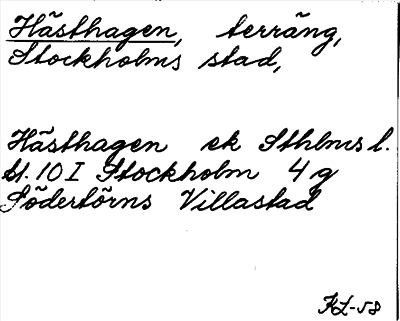 Hästhagen, terräng,
Stockholms stad,
Hästhagen ek Sthlms l.
bl. 10 I Stockholm 4 g
Södertörns Villastad
KL-58